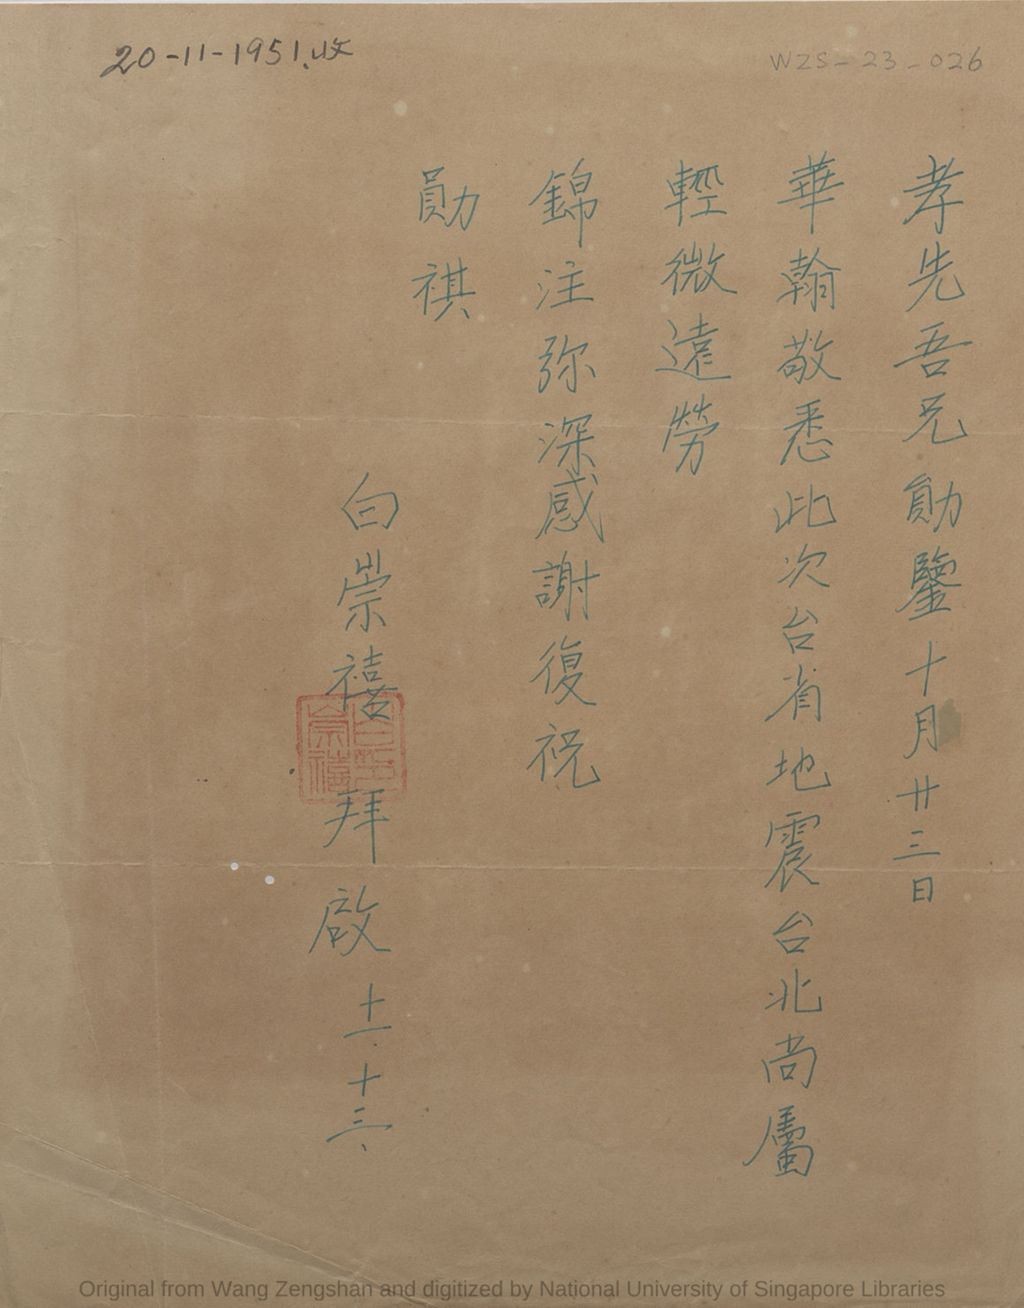 20-11-1951.收
WZS-23-026
孝先吾兄勛鑒十月廿三日
華翰敬悉此次台省地震台北尚屬
輕微遠勞
錦注弥深感謝復祝
勛祺
白崇禧拜啟 十一.十三、
白崇禧印
Original from Wang Zengshan and digitized by National University of Singapore Libraries